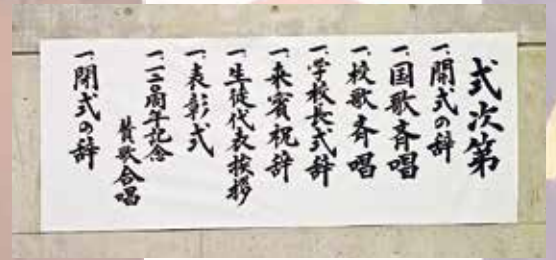 式次第
一、開式の辞
一、国歌斉唱
一、校歌斉唱
一、学校長式辞
一、来賓祝辞
一、生徒代表挨拶
一、表彰式
一、一二〇周年記念
賛歌合唱
一、閉式の辞